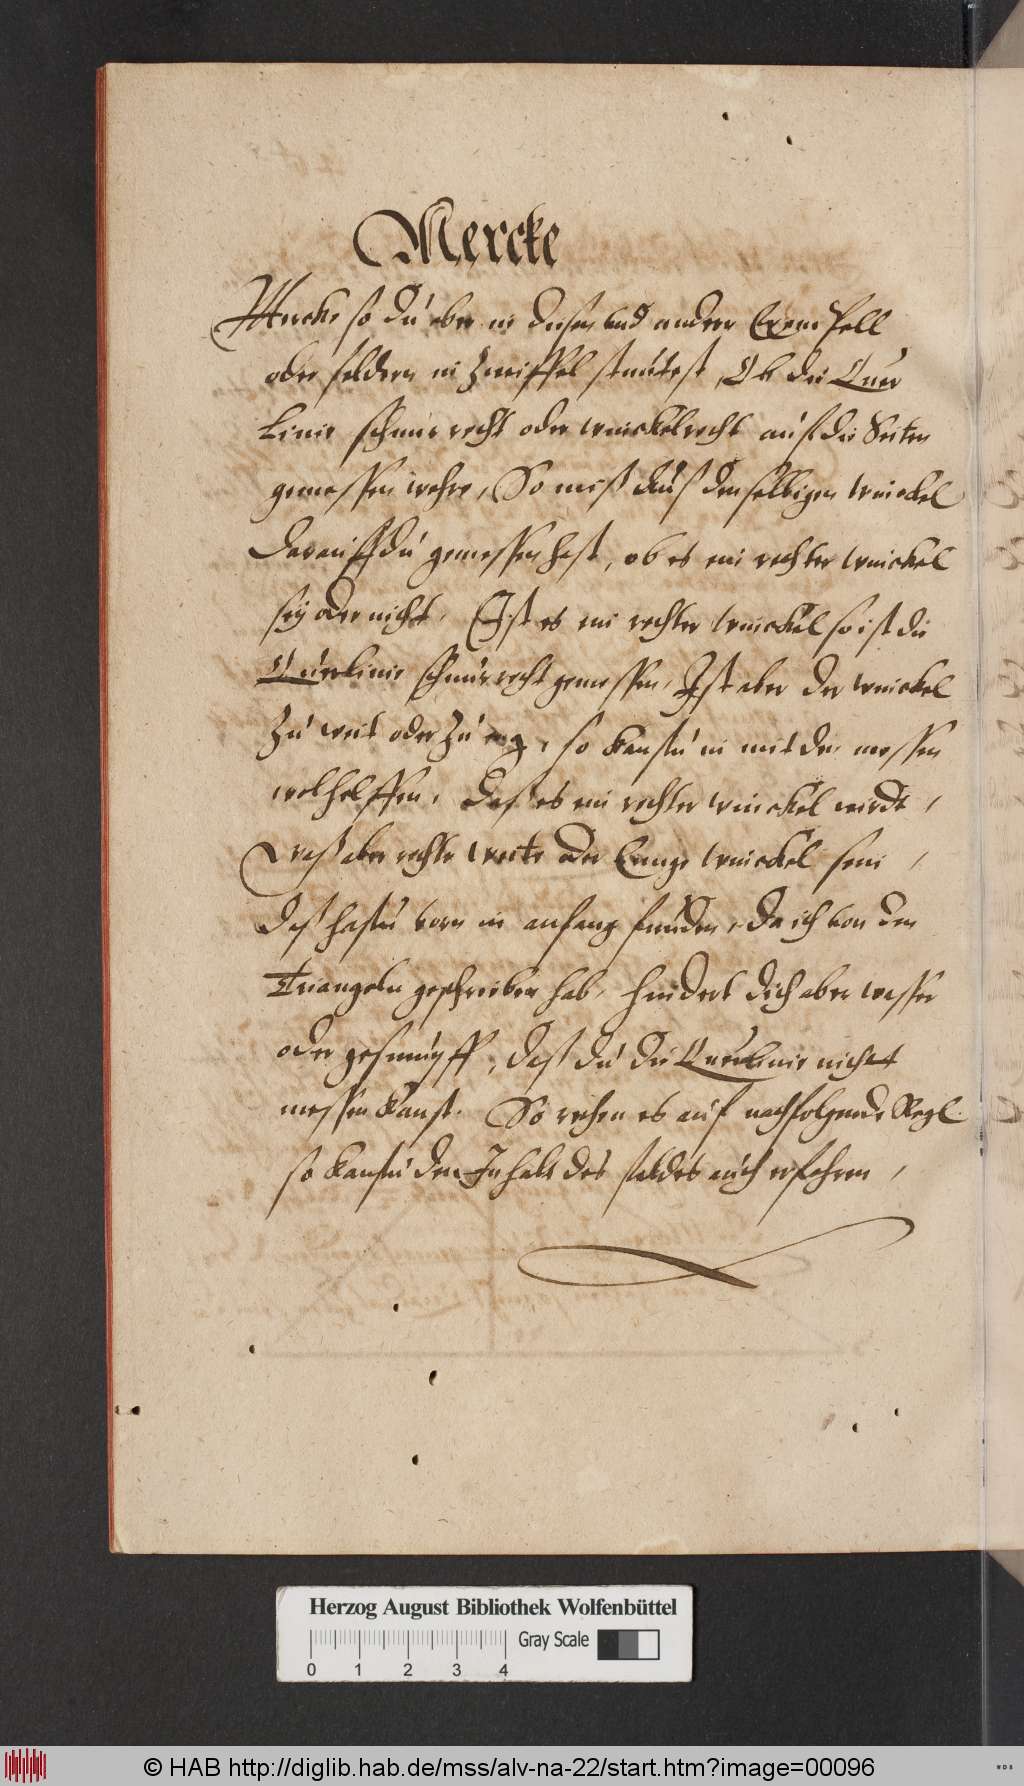 Mercke
Mercke so du aber in diesen und andern Exempell
oder feldern in Zweiffel stündest, Ob die Quer
Linie schnurrecht oder winckelrecht auf die Seiten
gemessen wehre, So miß auß denselbigen winckel
Darauß du gemessen hast, ob es ein rechter winckel
sey oder nicht. Ist es ein rechter winckel so ist die
Querlinie schnurrecht gemessen, Ist aber der winckel
Zu weit oder Zu eng, so kanstu im mit den messen
wol helffen, daß es ein rechter winckel wirdt,
Waß aber rechte weite oder Ennge winckel sein,
daß hastu vorn im anfang funden, da ich von den
Triangeln geschrieben hab, hindert dich aber wasser
oder gesumpff, daß du die Querlinie nicht
messen kanst. So rechen es auf nachfolgende Regl.
so kanstu den Inhalt des feldes auch erfahren,
Herzog August Bibliothek Wolfenbüttel
Gray Scale
0 1 2 3 4
© HAB http://diglib.hab.de/mss/alv-na-22/start.htm?image=00096